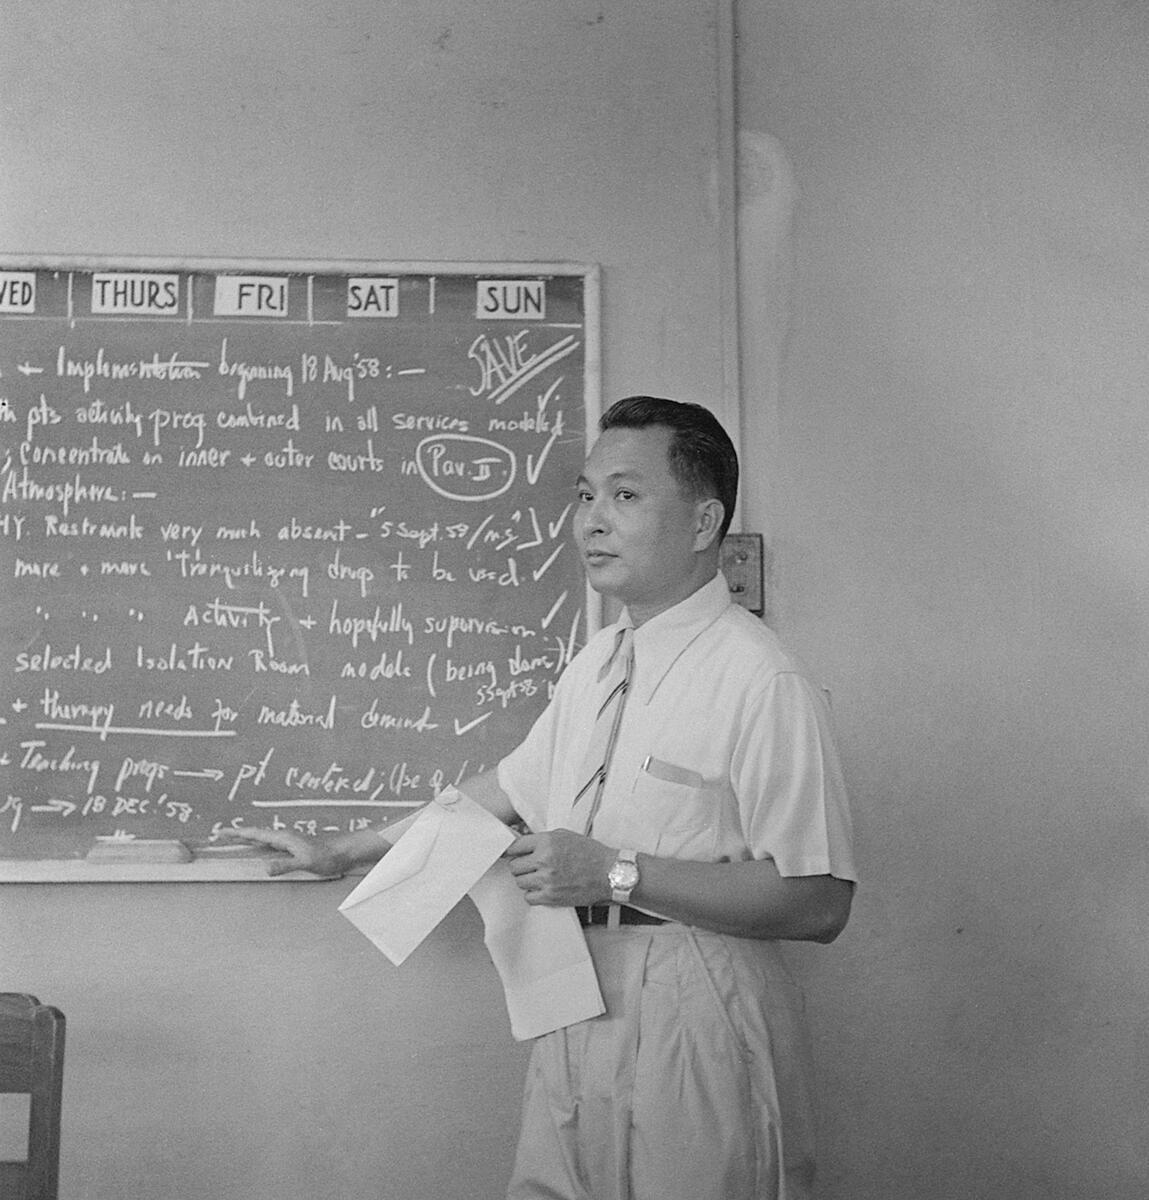 WED THURS FRI SAT SUN
SAVE
+ Implementation beginning 18 Aug '58: —
pts activity prog combined in all services modeled
; Concentrate on inner + outer courts in Pav. II.
Atmosphere: —
HY. Restraints very much absent - "5 Sept. 58/
more + more 'Tranquilizing drugs to be used.
" " " Activity + hopefully supervision.
selected Isolation Room models (being done)
5 Sept 58
+ therapy needs for material demand
+ Teaching progs → pt centered; (be
→ 18 DEC. '58.
58 -